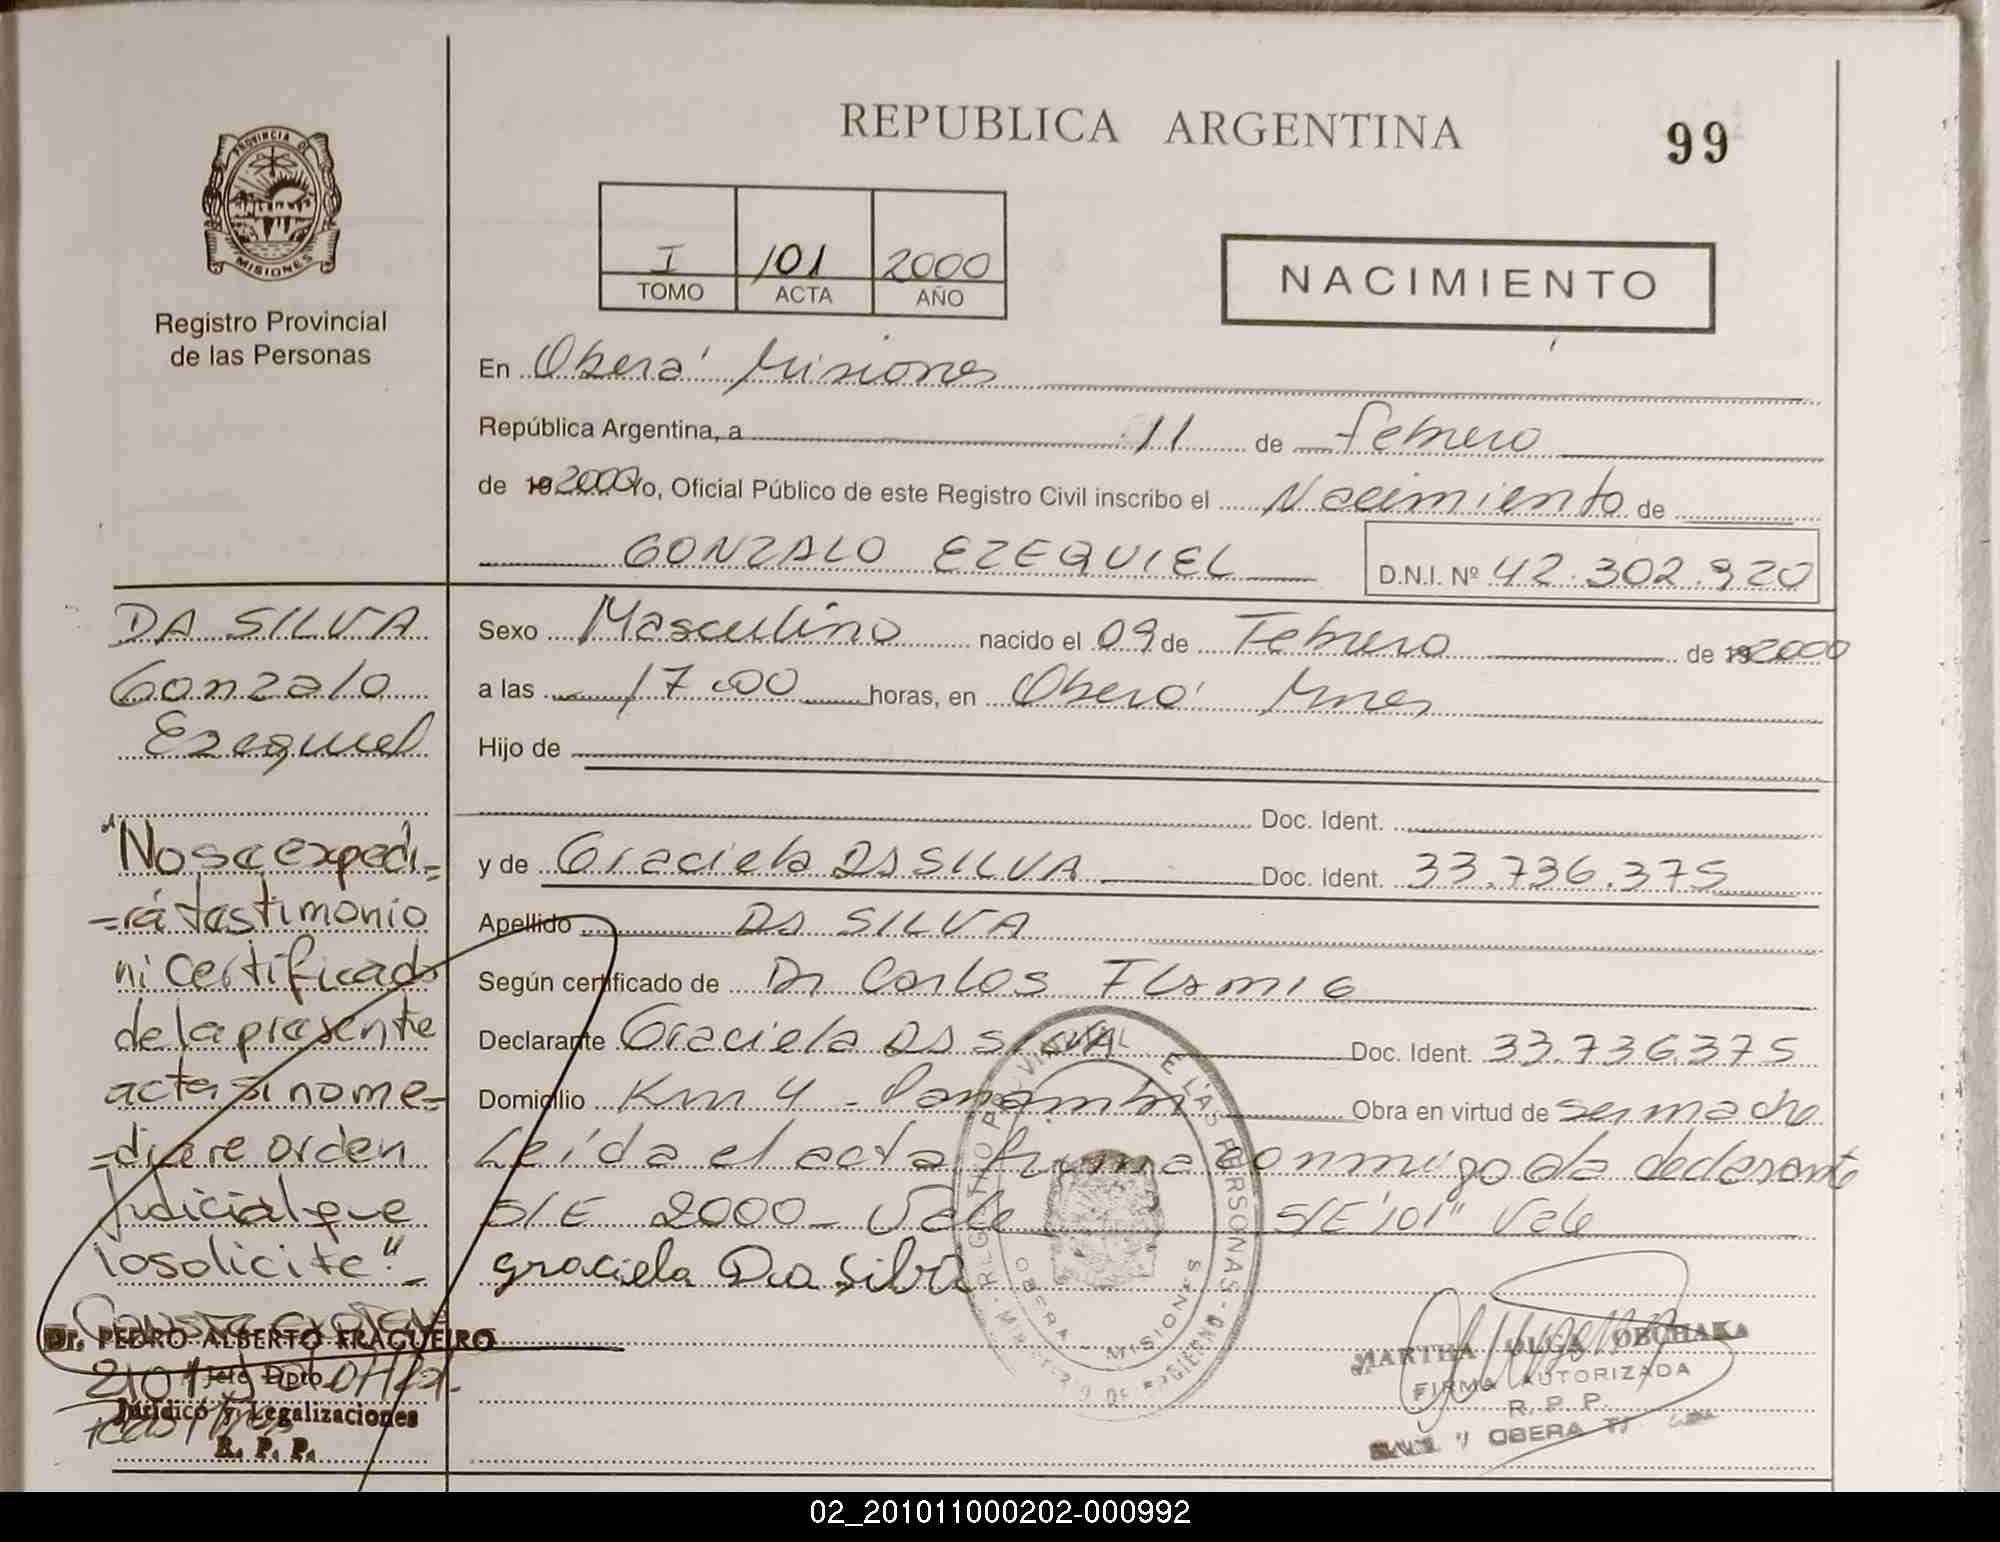 REPUBLICA ARGENTINA
99
PROVINCIA DE
MISIONES
Registro Provincial
de las Personas
I 101 2000
TOMO ACTA AÑO
NACIMIENTO
En Oberá Misiones
República Argentina, a 11 de febrero
de 19 2000 Yo, Oficial Público de este Registro Civil inscribo el Nacimiento de
GONZALO EZEQUIEL D.N.I. Nº 42.302.920
DA SILVA
Gonzalo
Ezequiel
Sexo Masculino nacido el 09 de Febrero de 19 2000
a las 17.00 horas, en Oberá Mnes
Hijo de
Doc. Ident.
y de Graciela DA SILVA Doc. Ident. 33.736.375
Apellido DA SILVA
Según certificado de Dr Carlos
Declarante Graciela DA SILVA Doc. Ident. 33.736.375
Domicilio Km 4 - Panambi Obra en virtud de ser madre
Leída el acta firma conmigo la declarante
S/E 2000 - Vale S/E "101" Vale
graciela Da silva
"No se expedi=
=rá testimonio
ni certificado
de la presente
acta si no me=
=diare orden
Judicial que
lo solicite."
Dr. PEDRO ALBERTO FRAGUEIRO
Jefe Dpto.
Jurídico y Legalizaciones
R. P. P.
REGISTRO PROVINCIAL DE LAS PERSONAS - MINISTERIO DE GOBIERNO
OBERA - MISIONES
MARTHA OLGA OBUHAKA
FIRMA AUTORIZADA
R. P. P.
OBERA
02_201011000202-000992